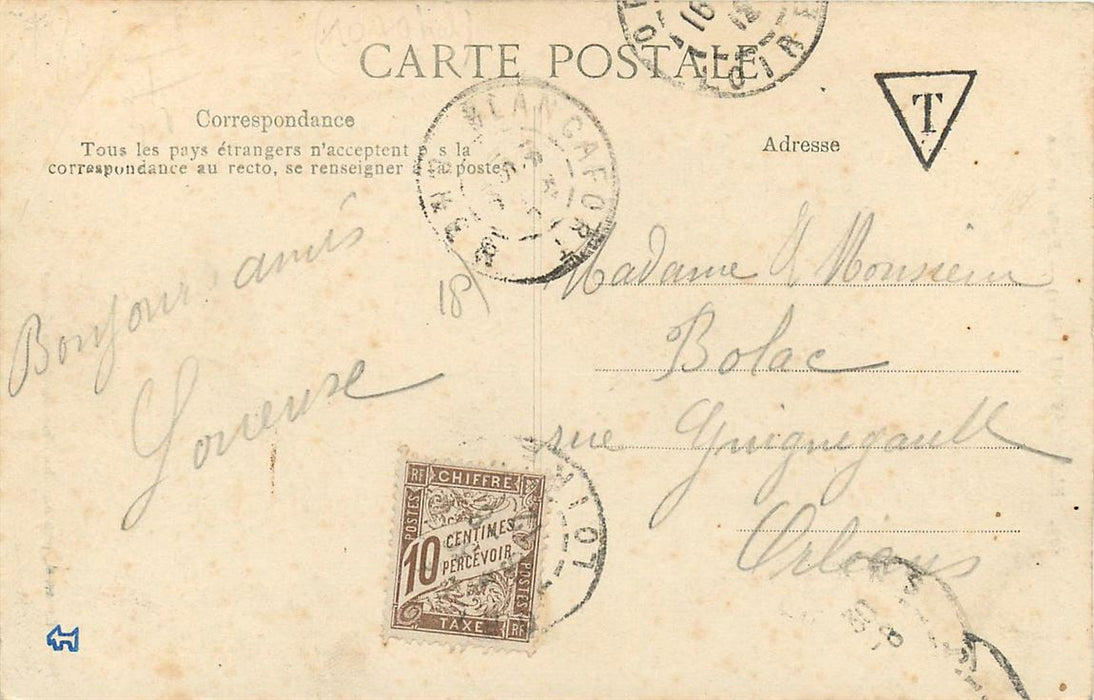 CARTE POSTALE
Correspondance
Tous les pays étrangers n'acceptent p s la
correspondance au recto, se renseigner à la poste
Adresse
T
BLANCAFORT
CHER
LOIRET
18)
Bonjour amis
Madame & Monsieur
Bolac
rue Guiguegault
Orléans
RF CHIFFRE
POSTES
10 CENTIMES
À PERCEVOIR
POSTES
TAXE RF
LOIRET